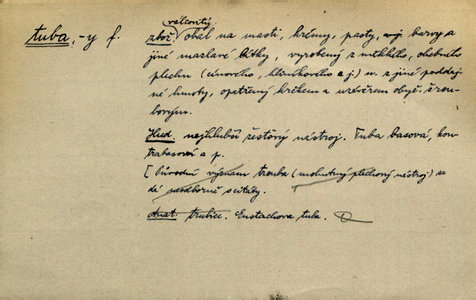 válcovitý
tuba, -y f. zbož. obal na masti, krémy, pasty, barvy a
jiné mazlavé látky, vyrobený z měkkého, ohebného
plechu (cínového, hliníkového a j.) n. z jiné poddaj-
né hmoty, opatřený krkem a uzávěrem obyč. šrou-
bovým.
Hud. nejhlubší žesťový nástroj. Tuba basová, kon-
trabasová a p.
[Původní význam trouba (mohutný plechový nástroj) se
dé neodborně
Anat. trubice. Eustachova tuba.